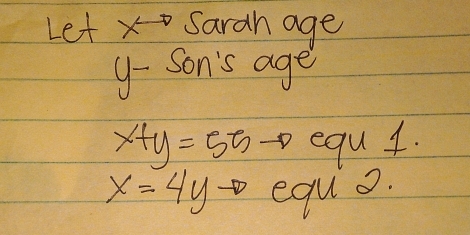 Let x→ Sarah age
y- Son's age
x+y = 55 → equ 1.
x = 4y → equ 2.